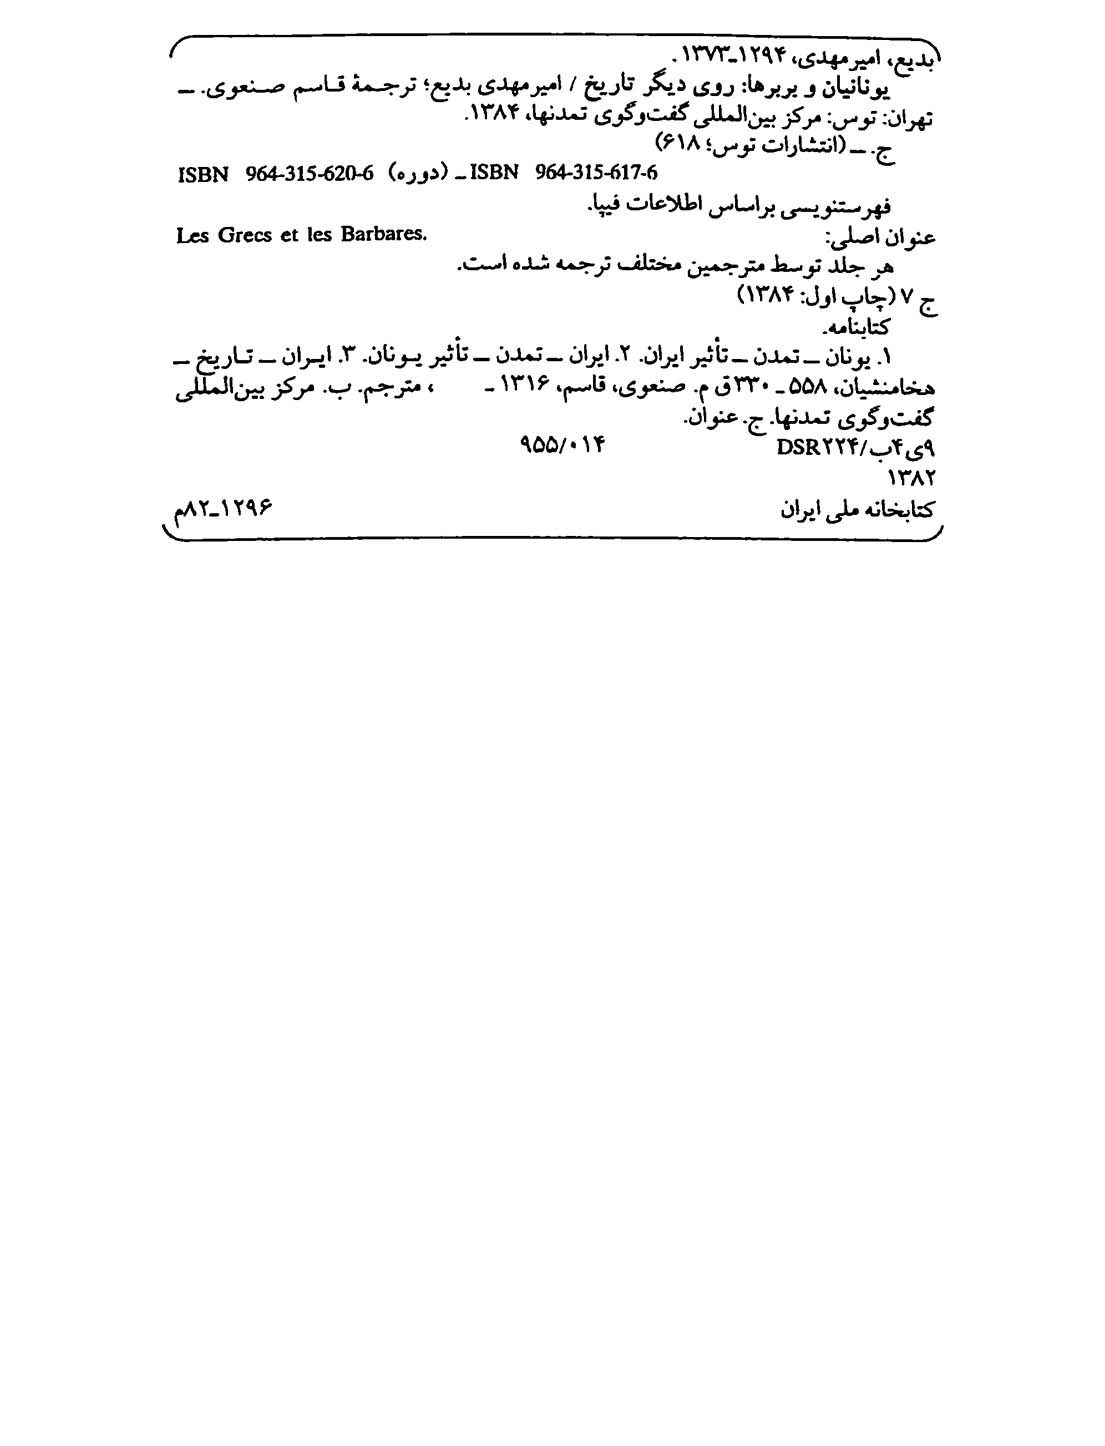 بدیع، امیرمهدی، ۱۲۹۴ـ۱۳۷۳.
یونانیان و بربرها: روی دیگر تاریخ / امیرمهدی بدیع؛ ترجمهٔ قاسم صنعوی. ـ
تهران: توس: مرکز بین‌المللی گفت‌وگوی تمدنها، ۱۳۸۴.
ج. ـ (انتشارات توس؛ ۶۱۸)
ISBN 964-315-620-6 (دوره) ـ ISBN 964-315-617-6
فهرستنویسی براساس اطلاعات فیپا.
عنوان اصلی: Les Grecs et les Barbares.
هر جلد توسط مترجمین مختلف ترجمه شده است.
ج ۷ (چاپ اول: ۱۳۸۴)
کتابنامه.
۱. یونان ـ تمدن ـ تأثیر ایران. ۲. ایران ـ تمدن ـ تأثیر یونان. ۳. ایران ـ تاریخ ـ
هخامنشیان، ۵۵۸ ـ ۳۳۰ ق م. صنعوی، قاسم، ۱۳۱۶ ـ ، مترجم. ب. مرکز بین‌المللی
گفت‌وگوی تمدنها. ج. عنوان.
۹ی۴ب/DSR۲۲۴ ۹۵۵/۰۱۴
۱۳۸۲
کتابخانه ملی ایران ۱۲۹۶ـ۸۲م